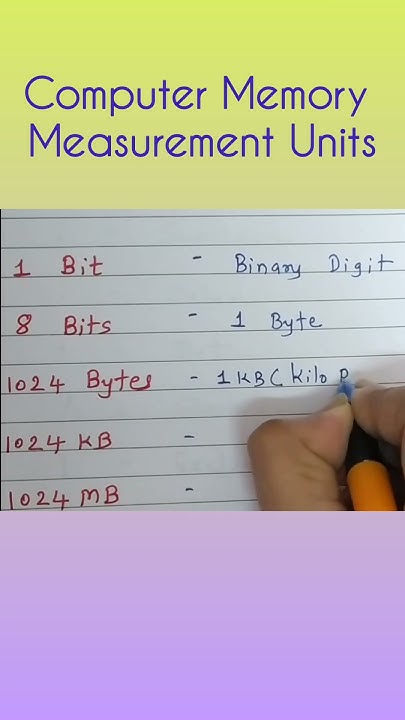 Computer Memory
Measurement Units
1 Bit - Binary Digit
8 Bits - 1 Byte
1024 Bytes - 1 KB ( Kilo B
1024 KB -
1024 MB -